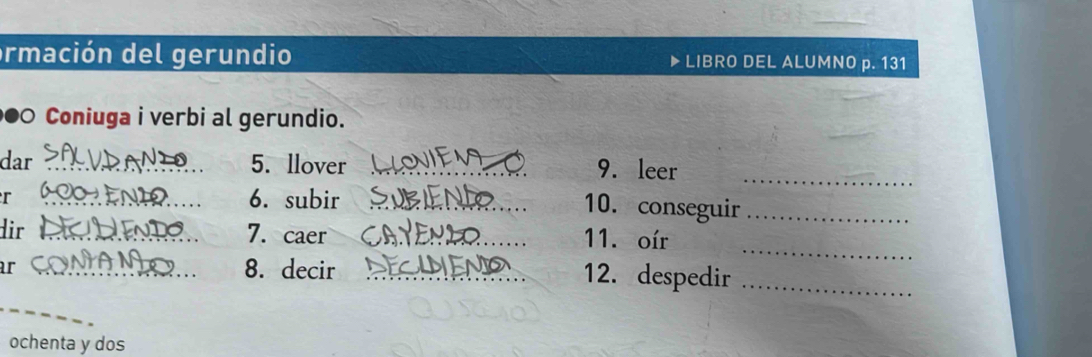 ormación del gerundio
▶ LIBRO DEL ALUMNO p. 131
Coniuga i verbi al gerundio.
dar SALUDANDO 5. llover LLOVIENDO 9. leer
r 6. subir SUBIENDO 10. conseguir
dir DECIDIENDO 7. caer CAYENDO 11. oír
ar CONTANDO 8. decir DECIDIENDO 12. despedir
ochenta y dos